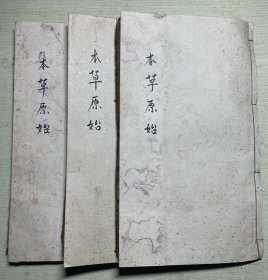 本草原始
本草原始
本草原始